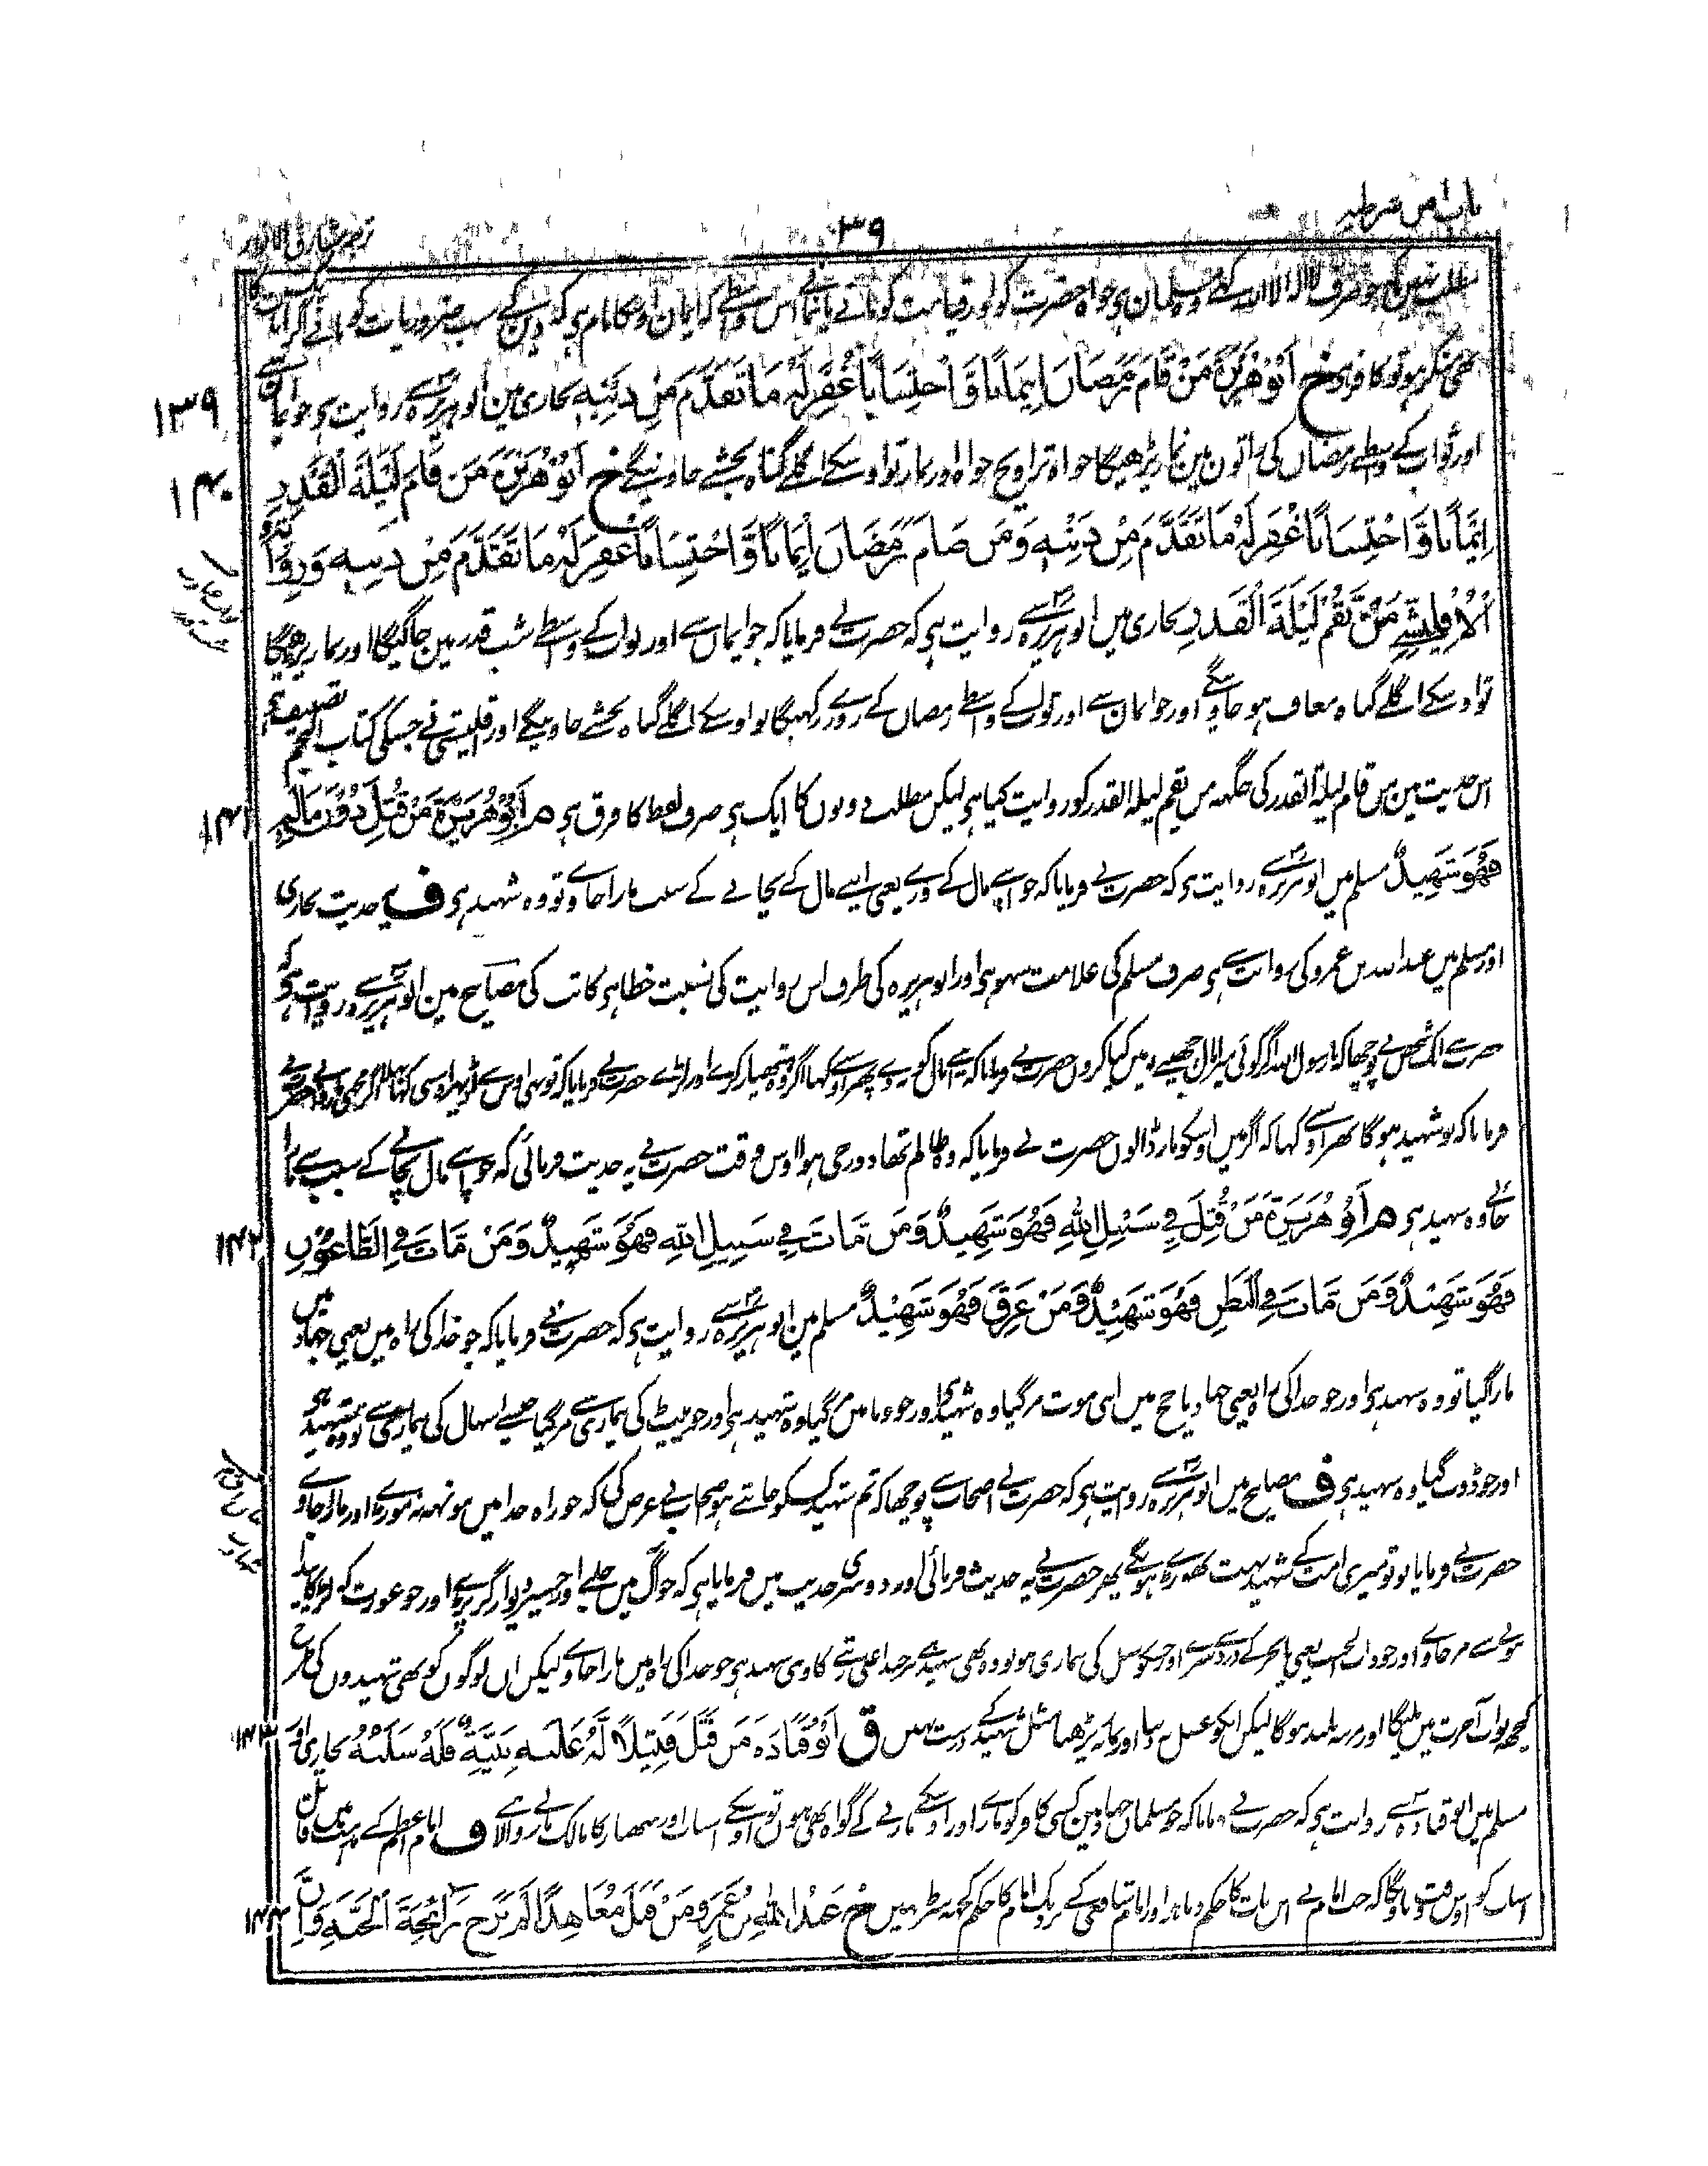 باب من شرطیہ
۳۹
ترجمہ مشارق الانوار
مطلب نہیں کہ جو صرف لا الہ الا اللہ کہے وہ مسلمان ہے خواہ حضرت کو اور قیامت کو مانے یا نمانے اس واسطے کہ ایمان اوسکا نام ہی کہ دین کے سب ضروریات کو مانے اگر ایک بات کا
بھی منکر ہو تو کافر ہی خ اَبُوْ هُرَيْرَةَ مَنْ قَامَ رَمَضَانَ اِيْمَانًا وَّاحْتِسَابًا غُفِرَلَهٗ مَا تَقَدَّمَ مِنْ ذَنْبِهٖ بخاری مین ابو ہریرہ سے روایت ہی جو ایمان سے
۱۳۹
اور ثواب کے واسطے رمضان کی راتون مین نماز پڑھیگا خواہ تراویح خواہ اور نماز تو اوسکے اگلے گناہ بخشے جاوینگے خ اَبُوْ هُرَيْرَةَ مَنْ قَامَ لَيْلَةَ الْقَدْرِ
۱۴۰
اِيْمَانًا وَّاحْتِسَابًا غُفِرَلَهٗ مَا تَقَدَّمَ مِنْ ذَنْبِهٖ وَمَنْ صَامَ رَمَضَانَ اِيْمَانًا وَّاحْتِسَابًا غُفِرَلَهٗ مَا تَقَدَّمَ مِنْ ذَنْبِهٖ وَرِوَايَةُ
الْاُقْلِيْشِيِّ مَنْ يَّقُمْ لَيْلَةَ الْقَدْرِ بخاری میں ابو ہریرہ سے روایت ہی کہ حضرت نے فرمایا کہ جو ایمان سے اور ثواب کے واسطے شب قدر مین جاگیگا اور نماز پڑھیگا
تو اوسکے اگلے گناہ معاف ہو جاوینگے اور جو ایمان سے اور ثواب کے واسطے رمضان کے روزے رکھیگا تو اوسکے اگلے گناہ بخشے جاوینگے اور اقلیشی نے جسکی کتاب النجم تصنیف ہی
اس حدیث مین من قام لیلۃ القدر کی جگہ من یقم لیلۃ القدر کو روایت کیا ہی لیکن مطلب دونوں کا ایک ہی صرف لفظ کا فرق ہی م اَبُوْ هُرَيْرَةَ مَنْ قُتِلَ دُوْنَ مَالِهٖ
۱۴۱
فَهُوَ شَهِيْدٌ مسلم میں ابو ہریرہ سے روایت ہی کہ حضرت نے فرمایا کہ جو اپنے مال کے ورے یعنی اپنے مال کے بچانے کے سبب مارا جاوے تو وہ شہید ہی ف یہ حدیث بخاری
اور مسلم میں عبد اللہ بن عمرو کی روایت سے ہی صرف مسلم کی علامت سہو ہی اور ابو ہریرہ کی طرف اس روایت کی نسبت خطا ہی کاتب کی مصابیح مین ابو ہریرہ سے روایت ہی کہ
حضرت سے ایک شخص نے پوچھا کہ یا رسول اللہ اگر کوئی میرا مال چھینے تو میں کیا کروں حضرت نے فرمایا کہ اپنے مال کو ندے پھر اوسنے کہا اگر وہ ہتھیار کرے اور لڑے حضرت نے فرمایا کہ تو بھی اوس سے لڑ
فرمایا کہ تو شہید ہوگا پھر اوسنے کہا کہ اگر میں اوسکو مار ڈالوں حضرت نے فرمایا کہ وہ ظالم تھا دوزخی ہوا اوس وقت حضرت نے یہ حدیث فرمائی کہ جو اپنے مال بچانے کے سبب سے مارا
جاوے وہ شہید ہی م اَبُوْ هُرَيْرَةَ مَنْ قُتِلَ فِيْ سَبِيْلِ اللهِ فَهُوَ شَهِيْدٌ وَمَنْ مَّاتَ فِيْ سَبِيْلِ اللهِ فَهُوَ شَهِيْدٌ وَمَنْ مَّاتَ فِي الطَّاعُوْنِ
۱۴۲
فَهُوَ شَهِيْدٌ وَمَنْ مَّاتَ فِي الْبَطْنِ فَهُوَ شَهِيْدٌ وَمَنْ غَرِقَ فَهُوَ شَهِيْدٌ مسلم مین ابو ہریرہ سے روایت ہی کہ حضرت نے فرمایا کہ جو خدا کی راہ میں یعنی جہاد میں
مارا گیا تو وہ شہید ہی اور جو خدا کی راہ یعنی جہاد یا حج میں اپنی موت مر گیا وہ شہید ہی اور جو وبا میں مر گیا وہ شہید ہی اور جو پیٹ کی بیماری سے مر گیا جیسے اسہال کی بیماری سے تو وہ شہید ہی
اور جو ڈوب گیا وہ شہید ہی ف مصابیح میں ابو ہریرہ سے روایت ہی کہ حضرت نے اصحاب سے پوچھا کہ تم شہید کسکو جانتے ہو اصحاب نے عرض کی کہ جو راہ خدا میں مونہہ نہ موڑے اور مارا جاوے
حضرت نے فرمایا تو تو میری امت کے شہید بہت تھوڑے ہونگے پھر حضرت نے یہ حدیث فرمائی اور دوسری حدیث میں فرمایا ہی کہ جو آگ میں جلے اور جسپر دیوار گر پڑے اور جو عورت کہ لڑکا پیدا
ہونے سے مر جاوے اور جو ذات الجنب یعنی پانجر کے درد سے مرے اور جسکو سل کی بیماری ہو تو وہ بھی شہید ہی ہرچند اعلی رتبے کا وہی شہید ہی جو خدا کی راہ میں مارا جاوے لیکن ان لوگوں کو بھی شہیدوں کی طرح
کچھ ثواب آخرت میں ملیگا اور مرتبہ بلند ہوگا لیکن انکو غسل نہ دینا اور نماز نہ پڑھنا مثل شہید کے درست نہیں ق اَبُوْ قَتَادَةَ مَنْ قَتَلَ قَتِيْلًا لَّهٗ عَلَيْهِ بَيِّنَةٌ فَلَهٗ سَلَبُهٗ بخاری اور
۱۴۳
مسلم میں ابو قتادہ سے روایت ہی کہ حضرت نے فرمایا کہ جو مسلمان جہاد مین کسی کافر کو مارے اور اوسکے مارنے کے گواہ بھی ہوں تو اوسکے اسباب اور ہتھیار کا مالک مارنے والا ہی ف امام اعظم کے مذہب میں قاتل
اسباب کو اوس وقت پاویگا کہ جب امام نے اس بات کا حکم دیا ہو اور امام شافعی کے نزدیک امام کا حکم کچھ شرط نہیں خ عَبْدُ اللهِ بْنُ عَمْرٍو مَنْ قَتَلَ مُعَاهِدًا لَّمْ يَرَحْ رَائِحَةَ الْجَنَّةِ وَاِنَّ
۱۴۴